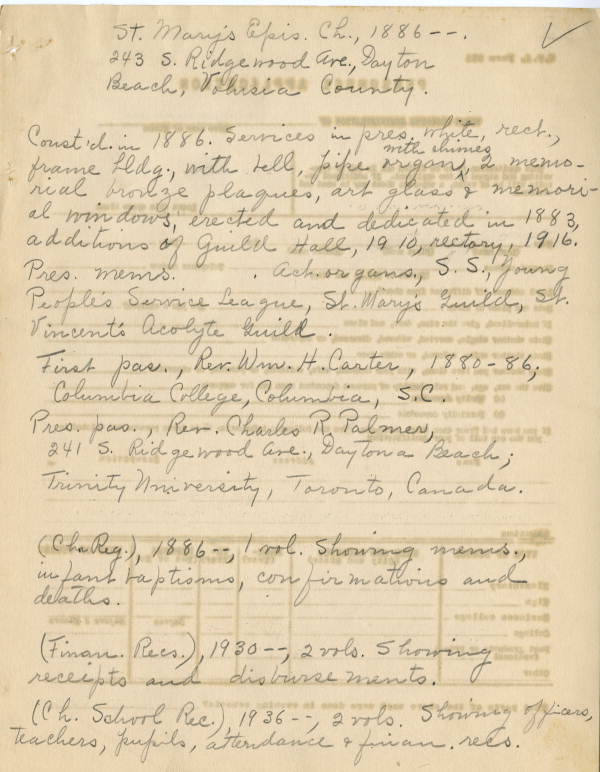 St. Mary's Epis. Ch., 1886--.
243 S. Ridgewood Ave., Dayton
Beach, Volusia County.
Const'd. in 1886. Services in pres. white, rect.,
frame bldg., with bell, pipe organ, with chimes 2 memo-
rial bronze plaques, art glass & memori-
al windows, erected and dedicated in 1883,
additions of Guild Hall, 1910, rectory, 1916.
Pres. mems. . Act. organs., S. S., Young
People's Service League, St. Mary's Guild, St.
Vincent's Acolyte Guild.
First pas., Rev. Wm. H. Carter, 1880-86;
Columbia College, Columbia, S.C.
Pres. pas., Rev. Charles R. Palmer,
241 S. Ridgewood Ave., Daytona Beach;
Trinity University, Toronto, Canada.
(Ch. Reg.), 1886--, 1 vol. Showing mems.,
infant baptisms, confirmations and
deaths.
(Finan. Recs.), 1930--, 2 vols. Showing
receipts and disbursements.
(Ch. School Rec.), 1936--, 2 vols. Showing officers,
teachers, pupils, attendance & finan. recs.